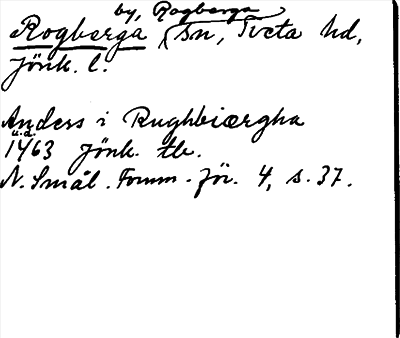 by, Rogberga
Rogberga sn, Tveta hd,
Jönk. l.
Anders i Rughbiærgha
u.d.
1463 Jönk. tb.
N. Smål. Fornm. för. 4, s. 37.